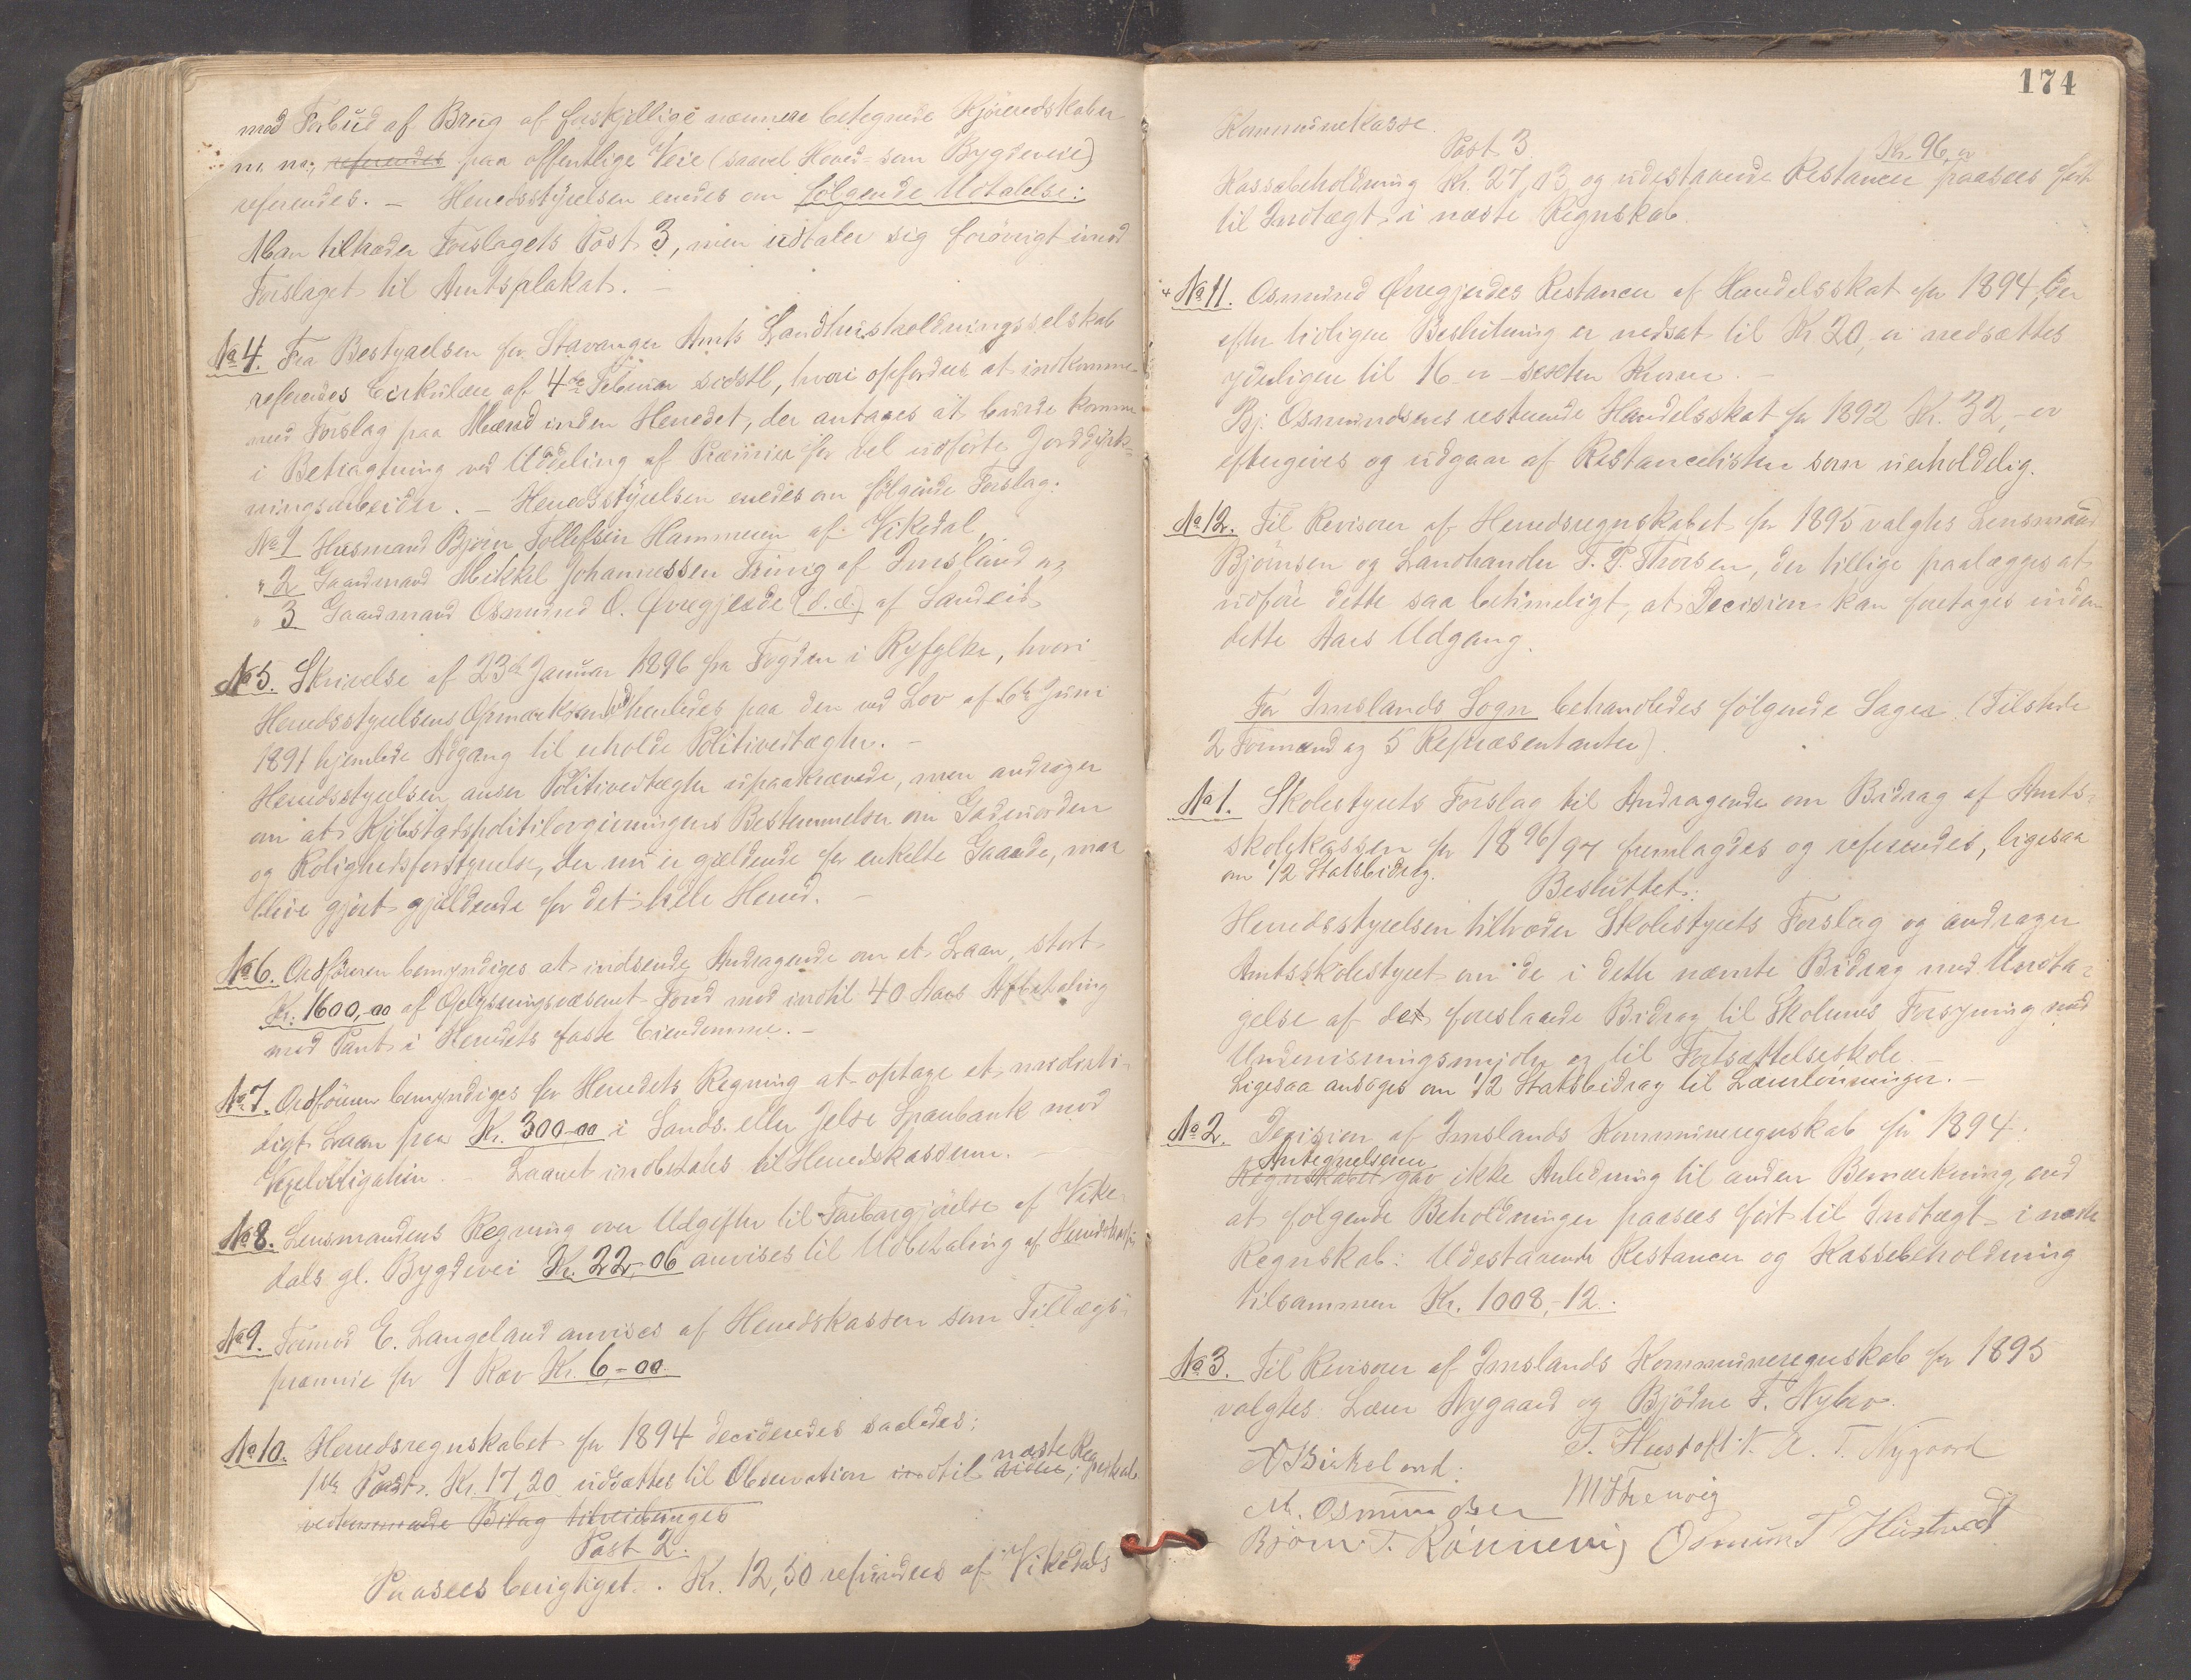 med Forbud af Brug af forskjellige nærmere betegnede Kjøreredskaber
m. m., referendes paa offentlige Veie (saavel Hoved- som Bygdeveie)
refereredes. – Herredsstyrelsen enedes om følgende Udtalelse:
Man tiltræder Forslagets Post 3, men udtaler sig forøvrigt imod
Forslaget til Amtsplakat. –
No 4. Fra Bestyrelsen for Stavanger Amts Landhusholdningsselskab
refereredes Cirkulære af 4de Februar sidstl, hvori opfordres at indkomme
med Forslag paa Mænd inden Herredet, der antages at burde komme
i Betragtning ved Uddeling af Præmier for vel udførte Jorddyrk-
ningsarbeider. – Herredsstyrelsen enedes om følgende Forslag:
No 1 Husmand Bjørn Tollefsen Hammeren af Vikedal,
" 2 Gaardmand Mikkel Johannessen Frønig af Imsland og
" 3 Gaardmand Osmund O. Øvregjerde (d. æ.) af Sandeid
No 5. Skrivelse af 23de Januar 1896 fra Fogden i Ryfylke, hvori
Herredsstyrelsens Opmærksomhed henledes paa den ved Lov af 6te Juni
1891 hjemlede Adgang til erholde Politivedtægter. –
Herredsstyrelsen anser Politivedtægter upaakrævede, men andrager
om at Kjøbstadspolitilovgivningens Bestemmelser om Gadeuorden
og Rolighedsforstyrrelse, der nu er gjældende for enkelte Gaarde, maa
blive gjort gjældende for det hele Herred. –
No 6. Ordføreren bemyndiges at indsende Andragende om et Laan, stort
Kr. 1600,00 af Oplysningsvæsenets Fond med indtil 40 Aars Afbetaling
mod Pant i Herredets faste Eiendomme. –
No 7. Ordføreren bemyndiges for Herredets Regning at optage et midlerti-
digt Laan paa Kr. 300-00 i Sands- eller Jelse Sparebank mod
Vexelobligation. – Laanet indbetales til Herredskassen. –
No 8. Lensmandens Regning over Udgifter til Farbargjørelse af Vike-
dals gl. Bygdevei Kr. 22,06 anvises til Udbetaling af Herredskassen
No 9. Tormod E. Langeland anvises af Herredskassen som Tillægs-
præmie for 1 Ræv Kr. 6,-00.
No 10. Herredsregnskabet for 1894 decideredes saaledes:
1ste Post. Kr. 17,20 udsættes til Observation indtil næste Regnskab
vedkommende Bilag tilveiebringes
Post 2.
Paasees berigtiget. Kr. 12,50 refunderes af Vikedals
174
Kommunekasse.
Post 3
Kassebeholdning Kr. 27,13 og udestaaende Restancer Kr. 96,- paasees ført
til Indtægt i næste Regnskab.
No 11. Osmund Øvregjerdes Restance af Handelsskat for 1894, der
efter tidligere Beslutning er nedsat til Kr 20, er nedsættes
yderligere til 16 – er – sexten Kroner. –
Bj. Osmundsens resterende Handelsskat for 1892 Kr. 32,- er
eftergives og udgaar af Restancelisten som uerholdelig.
No 12. Til Revisorer af Herredsregnskabet for 1895 valgtes Lensmand
Bjørnsen og Landhandler T. P. Thorsen, der tillige paalægges at
udføre dette saa betimeligt, at Decision kan foretages inden
dette Aars Udgang.
For Imslands Sogn behandledes følgende Sager (Tilstede
2 Formænd og 5 Repræsentanter).
No 1. Skolestyrets Forslag til Andragende om Bidrag af Amts-
skolekassen for 1896/97 fremlagdes og refereredes, ligesaa
om 1/2 Statsbidrag.
Besluttet:
Herredsstyrelsen tiltræder Skolestyrets Forslag og andrager
Amtsskolestyret om de i dette nævnte Bidrag med Undta-
gelse af det foreslaaede Bidrag til Skolernes Forsyning med
Undervisningsmidler og til Fortsættelseskole. –
Ligesaa ansøges om 1/2 Statsbidrag til Lærerlønninger. –
No 2. Decision af Imslands Kommuneregnskab for 1894.
Antegnelserne
Regnskabet gav ikke Anledning til anden Bemærkning, end
at følgende Beholdninger paasees ført til Indtægt i næste
Regnskab: Udestaaende Restancer og Kassebeholdning
tilsammen Kr. 1008,-12.
No 3. Til Revisorer af Imslands Kommuneregnskab for 1895
valgtes: Lærer Nygaard og Bjødne T. Nybro.
A Birkeland. T. Hustoft. A. T. Nygaard
M. Osmundsen M Frønig
Bjørn T. Rønnevig Osmund Hustvedt